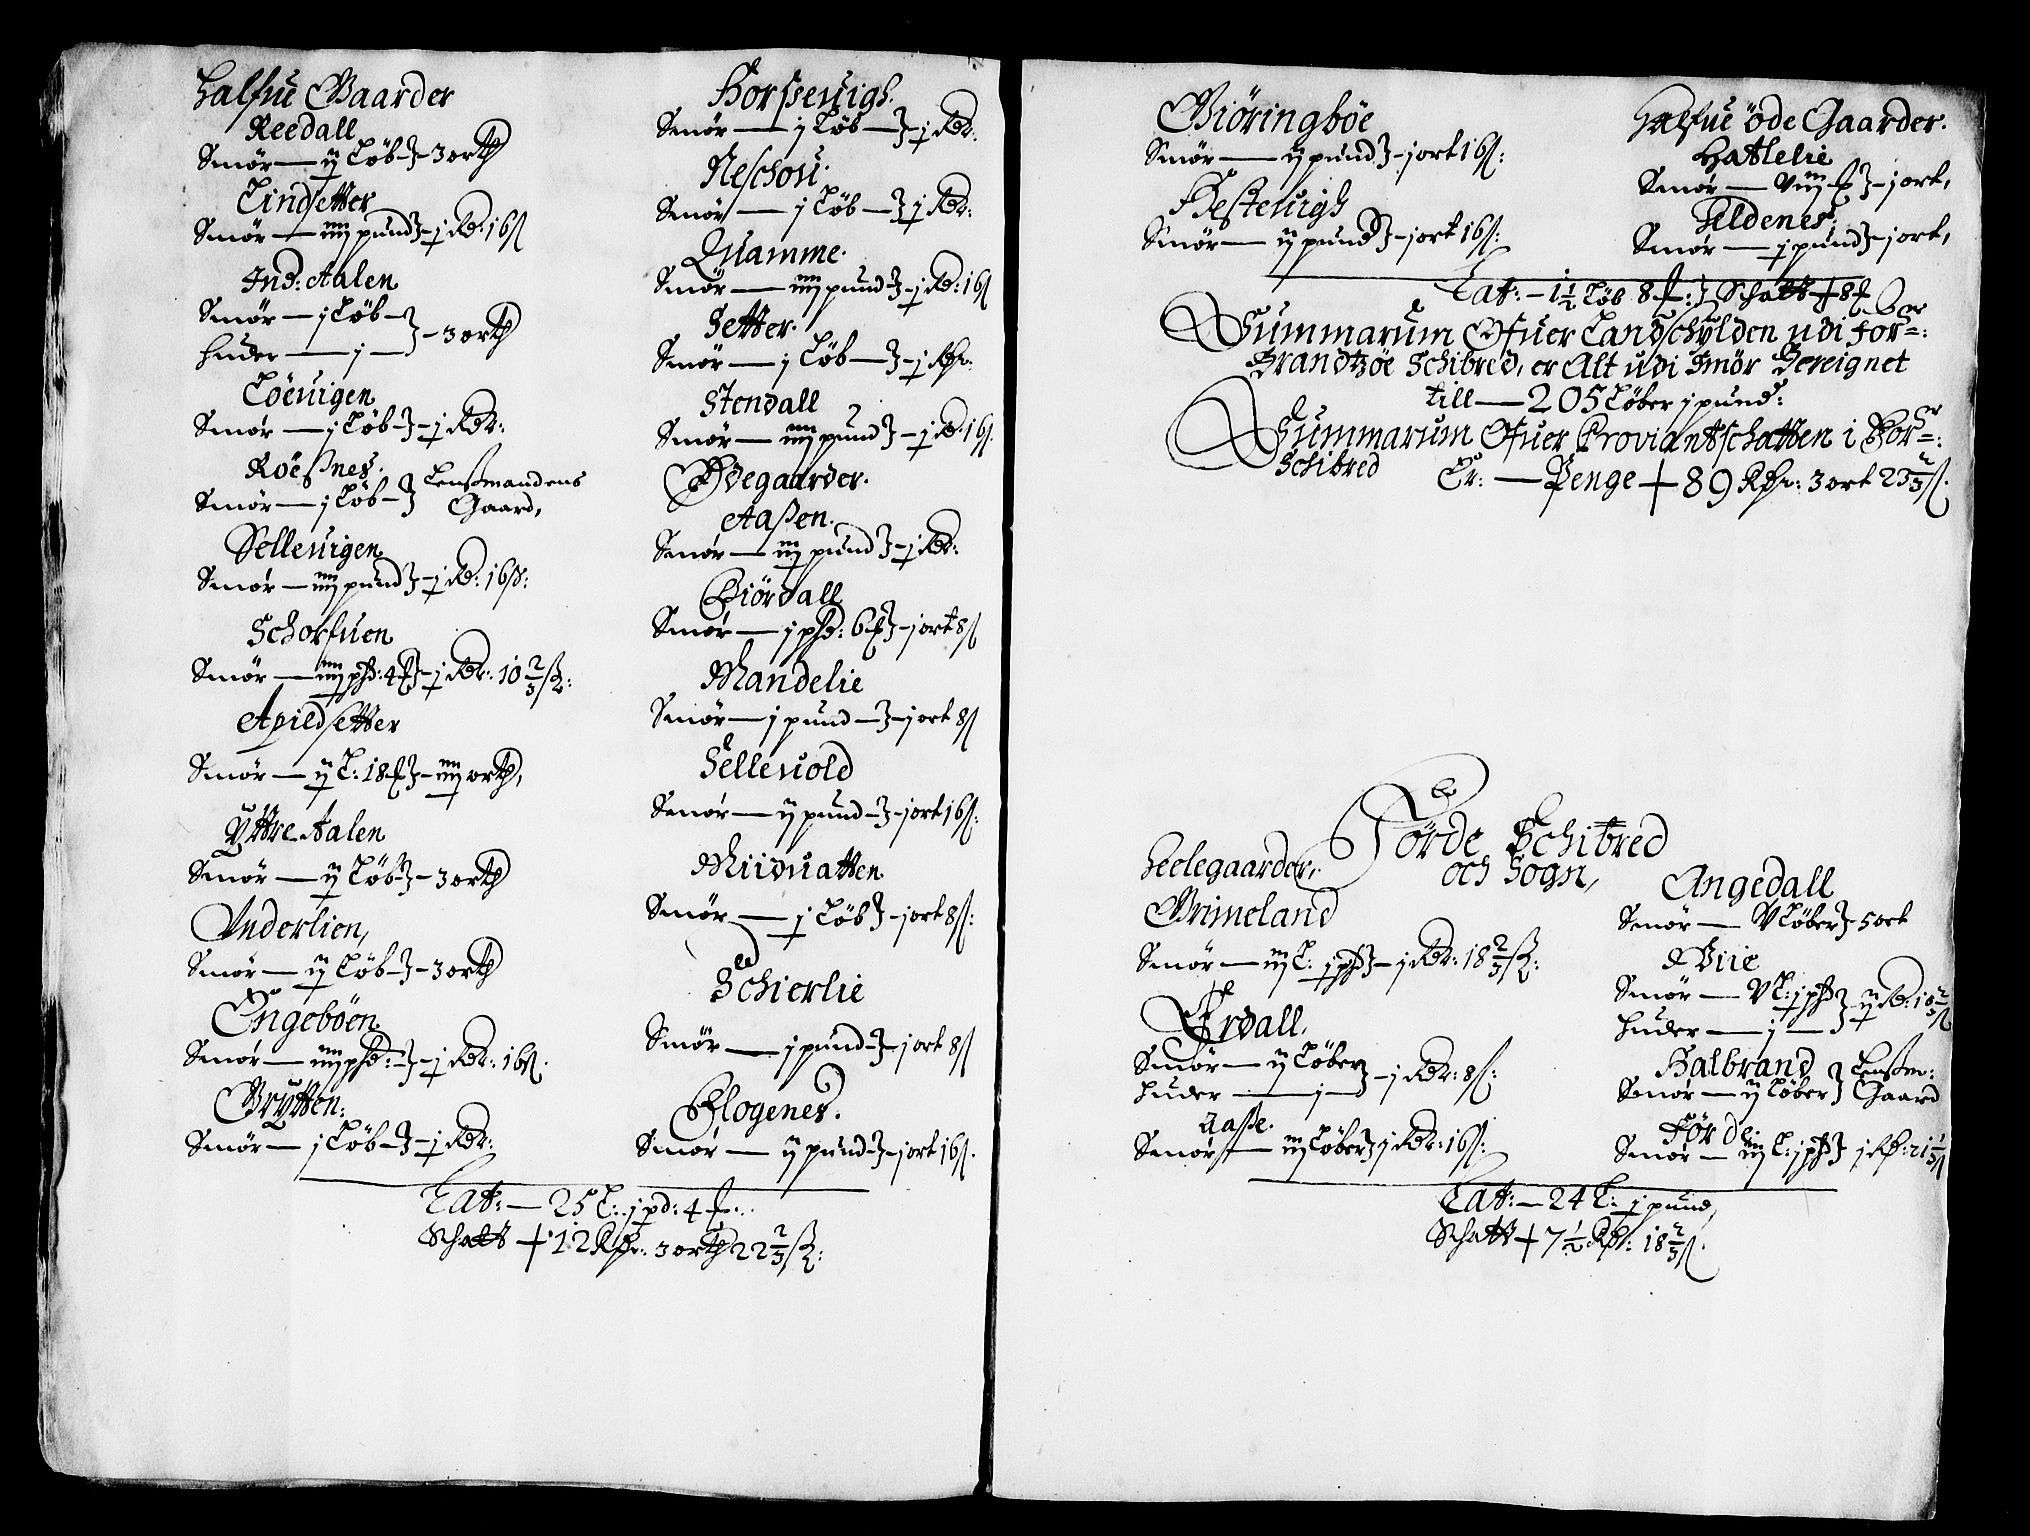 Halfue Gaarder
Reedall
Smør — ij Löb — 3 orth
Lindsetter
Smør — iiij pund — j Rdr: 16 ß
Ind: Aalen
Smør — j Löb
Huder — j — 3 orth
Löeuigen
Smør — j Löb — j Rdr:
Röeßnes.
Smør — j Löb — Lenßmandens Gaard,
Selleuigen
Smør — iiij pund — j Rd: 16 ß:
Schorfuen
Smør — iiij pd: 4 — j Rdr: 10 2/3 ß:
Apildsetter
Smør — ij L: 18 — iiij orth,
Yttre Aalen
Smør — ij Löb — 3 orth
Vnderlien,
Smør — ij Löb — 3 orth
Engeböen
Smør — iiij pd: — j Rdr: 16 ß.
Grytten:
Smør — j Löb — j Rdr:
Horßeuigh.
Smør — j Löb — j Rdr:
Neschou.
Smør — j Löb — j Rdr:
Quamme.
Smør — iiij pund — j Rd: 16 ß
Setter.
Smør — j Löb — j Rdr:
Stendall
Smør — iiij pund — j Rd: 16 ß.
Ödegaarder.
Aaßen.
Smør — iij pund — j Rdr:
Giördall
Smør — j pd: 6 — j ort 8 ß
Mandelie
Smør — j pund — j ort 8 ß
Selleuold
Smør — ij pund — j ort 16 ß:
Miiduatten
Smør — j Löb — j ort 8 ß:
Schierlie
Smør — j pund — j ort 8 ß
Flogenes.
Smør — ij pund — j ort 16 ß.
Lat: — 25 L: j pd: 4
Schatt + 12 Rdr: 3 orth 22 2/3 ß:
Giöringböe
Smør — ij pund — j ort 16 ß:
Hesteuigh
Smør — ij pund — j ort 16 ß:
Halfue öde Gaarder.
Hatlelie
Smør — Viij — j ort,
Eldenes,
Smør — j pund — j ort,
Lat: — 1 1/2 Löb 8 Schatt + 8
Summarum Ofuer Landschylden udi For:
Brandtzöe Schibred, er Alt udi Smör Bereignet
till — 205 Löber j pund:
Summarum Ofuer Proviantschatten i For:
Schibred Er: — Penge + 89 Rdr: 3 ort 23 2/3 ß.
Förde Schibred
och Sogn,
Heelegaarder,
Grimeland
Smør — iij L: j pd — j Rdr: 18 2/3 ß:
Erdall.
Smør — ij Löber
Huder — j — j Rdr: 8 ß:
Aaße.
Smør — iij Löber j Rdr: 16 ß:
Angedall
Smør — V Löber — 5 ort
Viie
Smør — V L: j pd
Huder — j — ij Rd: 10 2/3 ß
Halbrand
Smør — ij Löber Lenßm: Gaard
Förde
Smør — iiij L: j pd j Rdr: 21 1/3 ß
Lat: — 24 L: j pund,
Schatt + 7 1/2 Rdr: 18 2/3 ß.